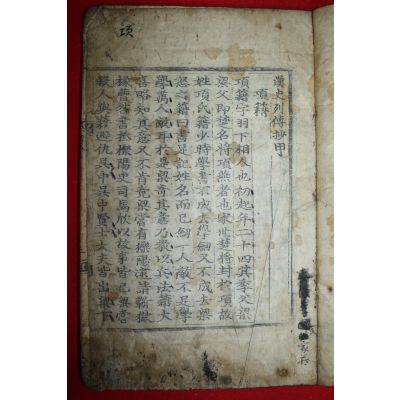 漢史列傳抄甲
項籍
項籍字羽下相人也初起年二十四其季父梁
梁父即楚名將項燕者也家世楚將封於項故
姓項氏籍少時學書不成去學劒又不成去梁
怒之籍曰書足記姓名而已劒一人敵不足學
學萬人敵耳於是梁奇其意乃教以兵法籍大
喜略知其意又不肯竟梁嘗有櫟陽逮請蘄獄
掾曹咎書抵櫟陽史司馬欣以故事皆已梁嘗
殺人與籍避仇吳中吳中賢士大夫皆出梁下
項